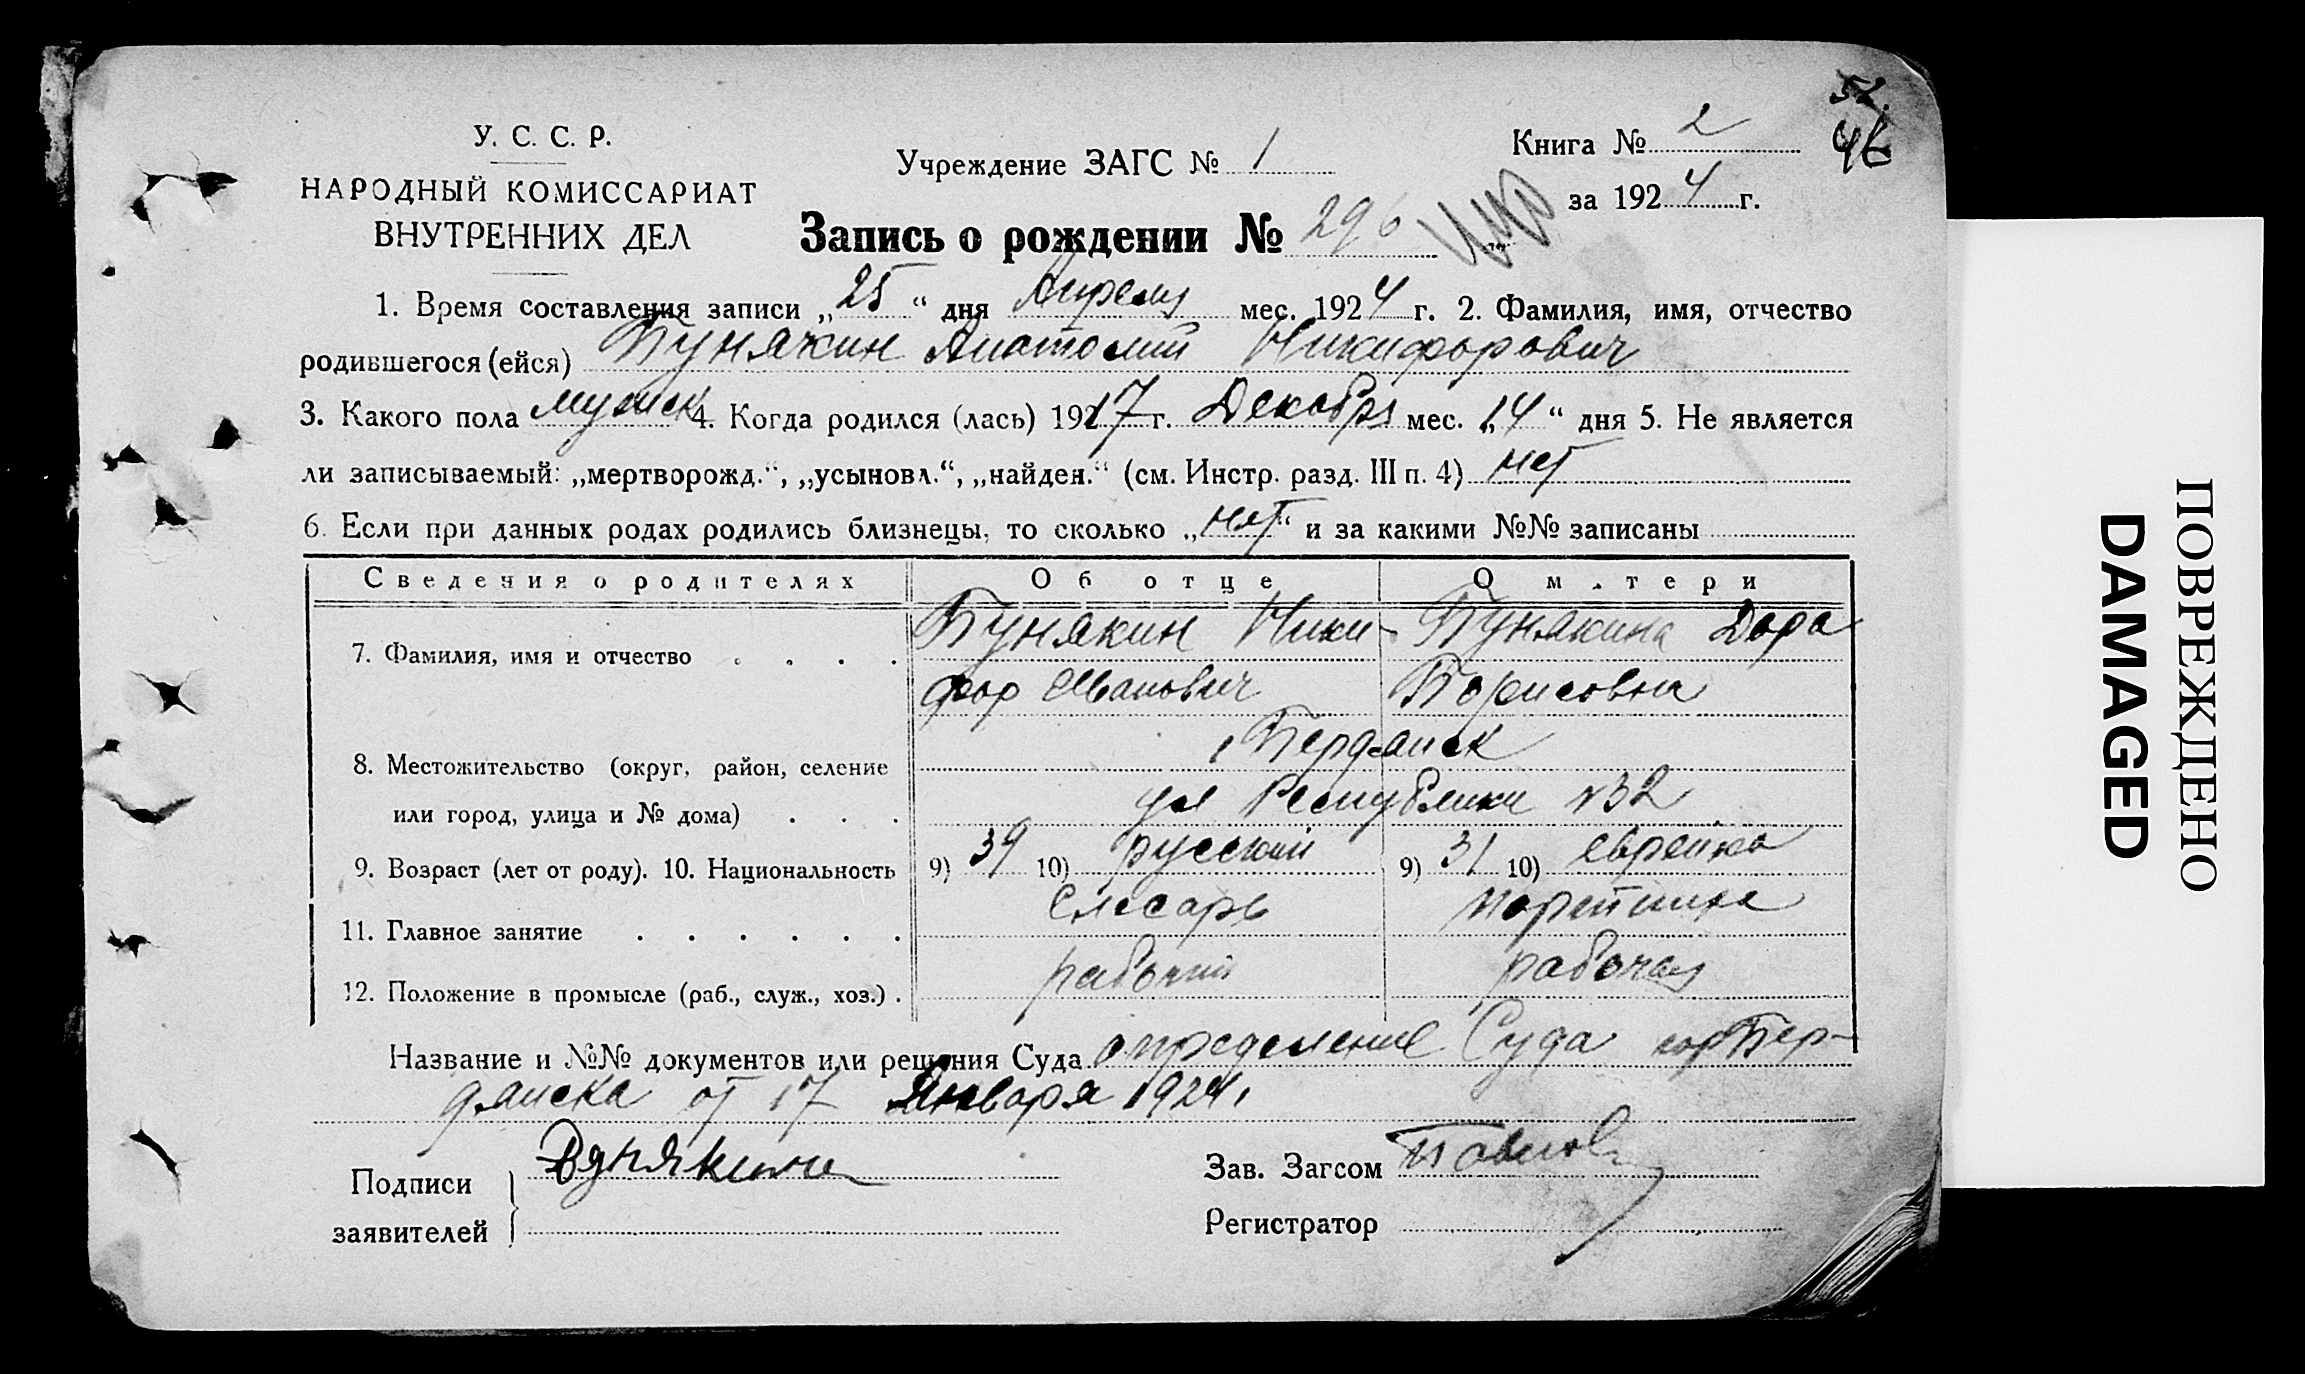 52.
46
У. С. С. Р.
НАРОДНЫЙ КОМИССАРИАТ
ВНУТРЕННИХ ДЕЛ
Учреждение ЗАГС № 1
Книга № 2
за 1924 г.
Запись о рождении № 296
1. Время составления записи „25“ дня Апреля мес. 1924 г. 2. Фамилия, имя, отчество
родившегося (ейся) Бунякин Анатолий Никифорович
3. Какого пола мужск 4. Когда родился (лась) 1917 г. Декабря мес. „14“ дня 5. Не является
ли записываемый: „мертворожд.“, „усыновл.“, „найден.“ (см. Инстр. разд. III п. 4) нет
6. Если при данных родах родились близнецы, то сколько „нет“ и за какими №№ записаны
Сведения о родителях Об отце О м.тери
7. Фамилия, имя и отчество . . . . Бунякин Ники- Бунякина Дора
фор Иванович Борисовна
8. Местожительство (округ, район, селение Бердянск
или город, улица и № дома) . . . ул Республики №32
9. Возраст (лет от роду). 10. Национальность 9) 39 10) русский 9) 31 10) еврейка
11. Главное занятие . . . . . . Слесарь портниха
12. Положение в промысле (раб., служ., хоз.) . рабочий рабочая
Название и №№ документов или решения Суда определение Суда гор Бер-
дянска от 17 Января 1924г
Подписи
заявителей
Бунякина
Зав. Загсом Павлов
Регистратор
ПОВРЕЖДЕНО
DAMAGED